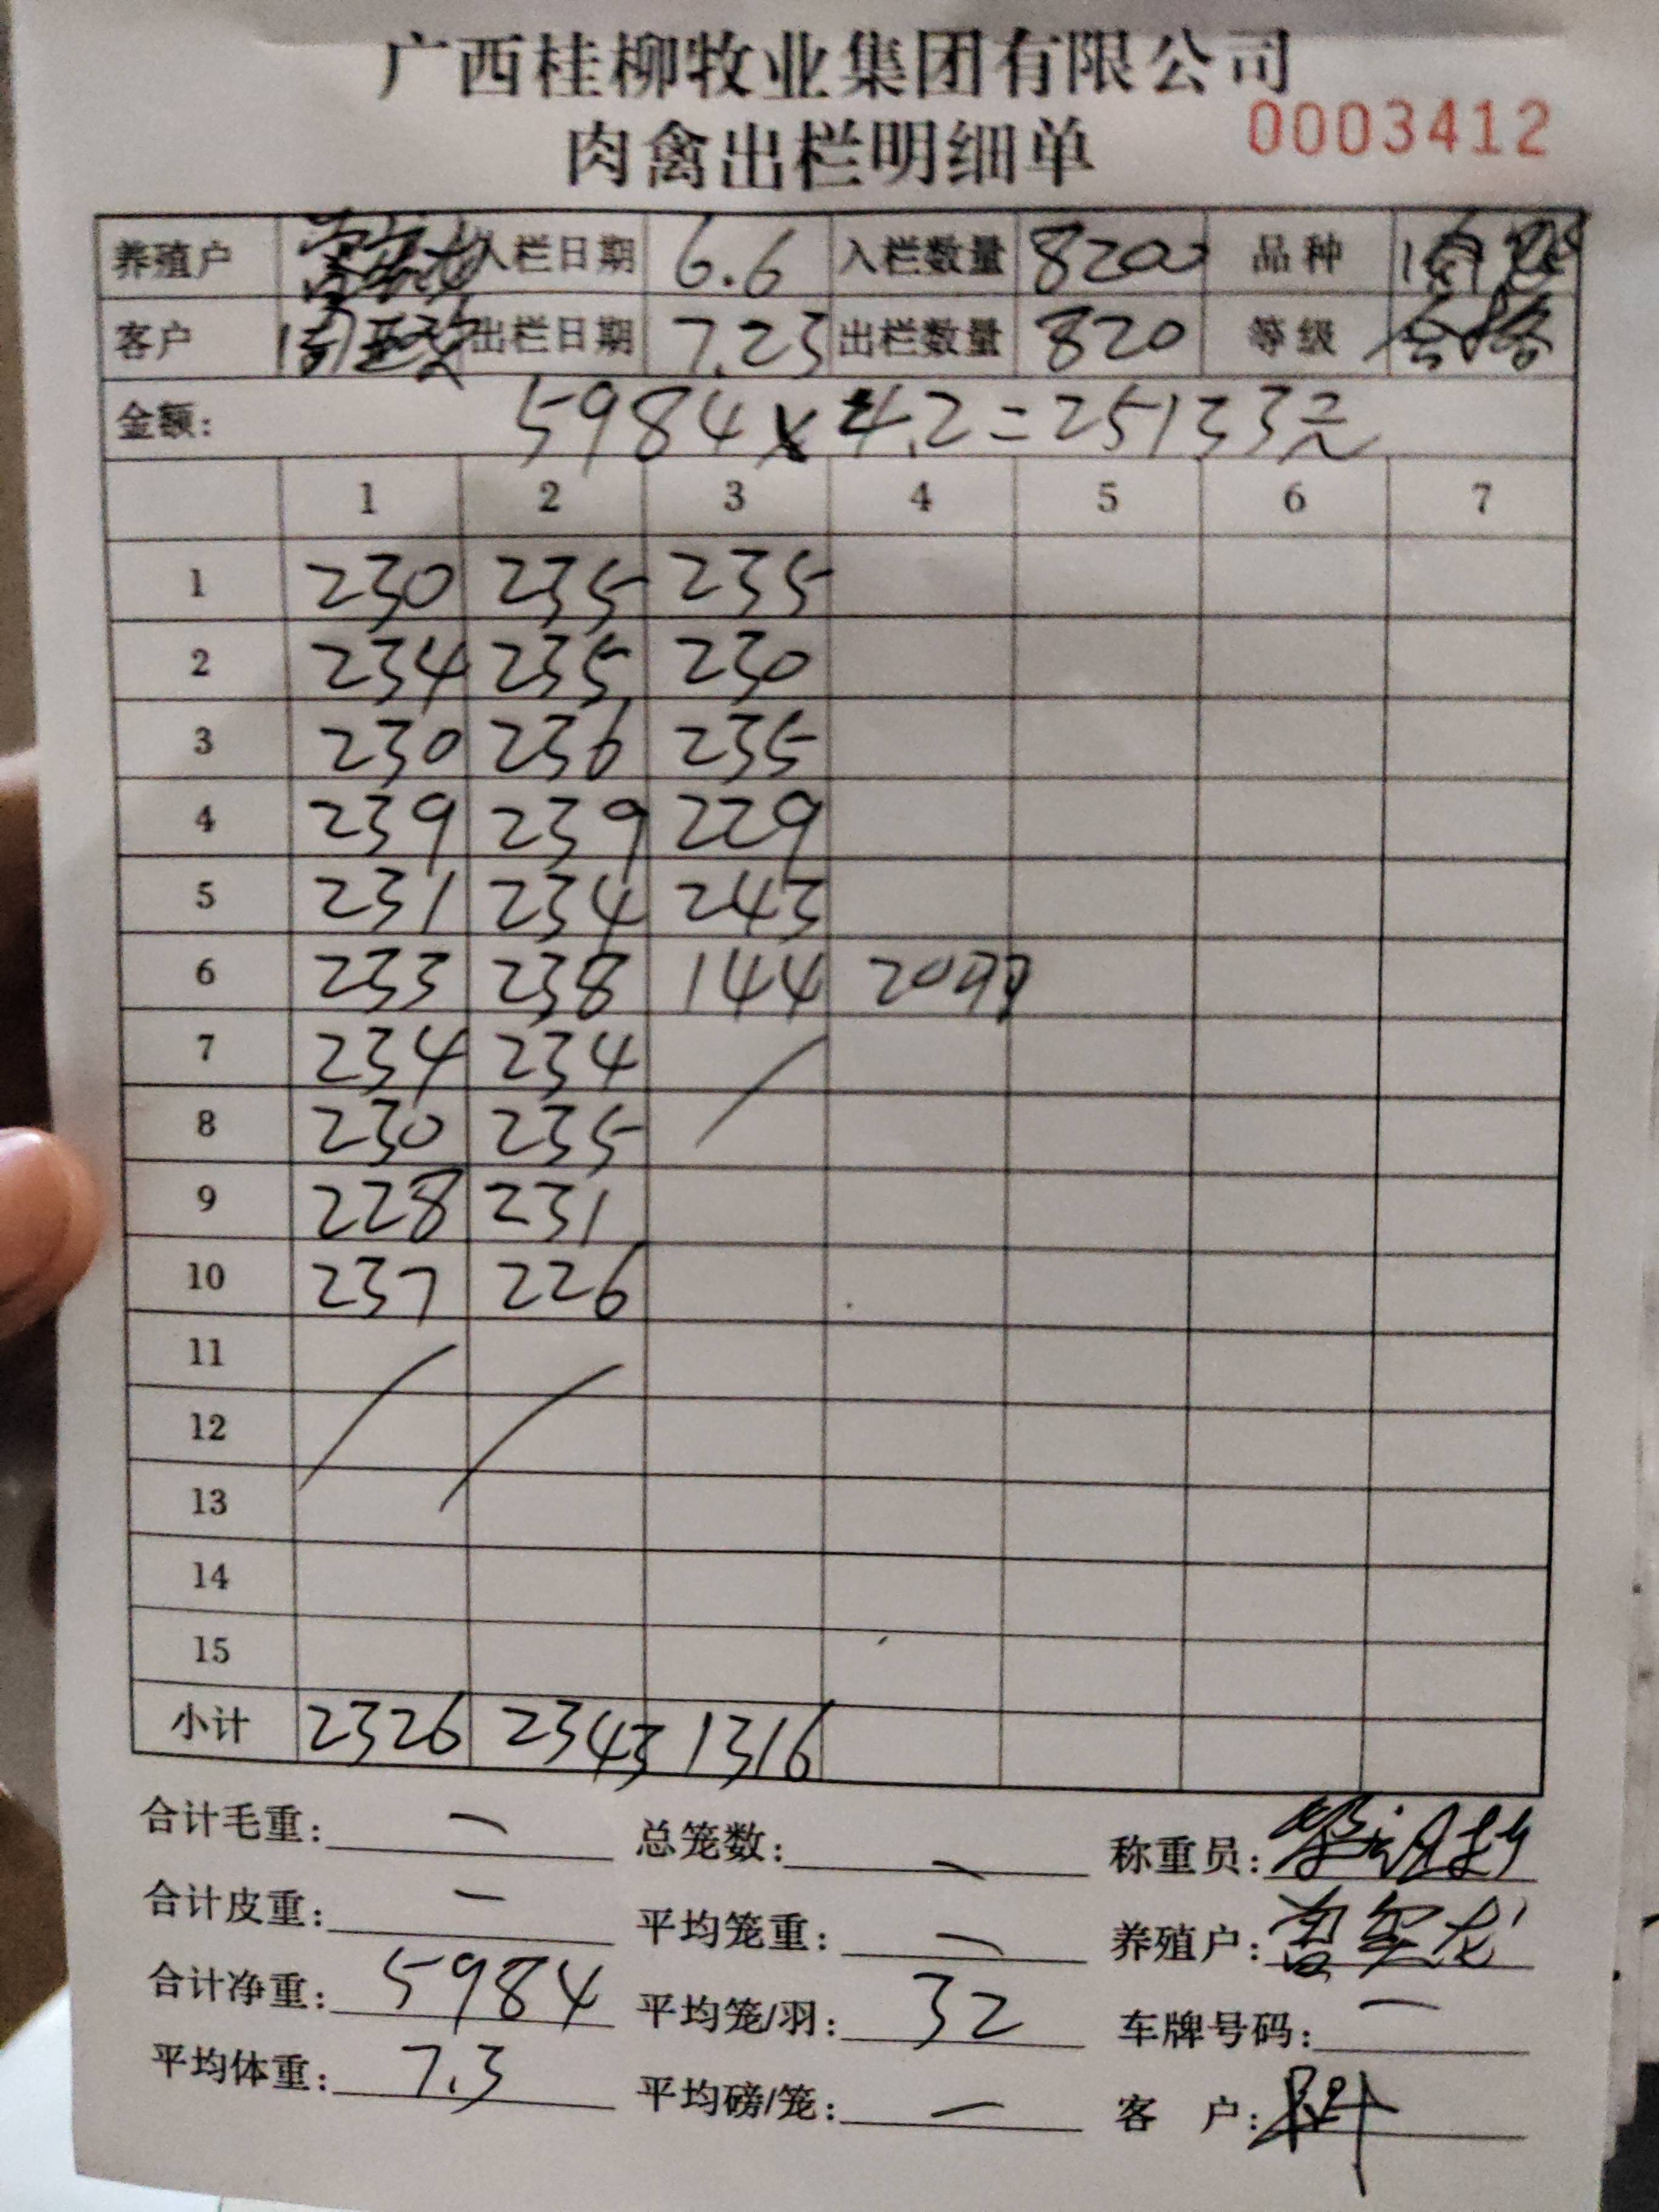 广西桂柳牧业集团有限公司
肉禽出栏明细单 0003412
养殖户 入栏日期 6.6 入栏数量 8200 品种
客户 出栏日期 7.23 出栏数量 820 等级 合格
金额: 5984×4.2=25133元
1 2 3 4 5 6 7
1 230 235 235
2 234 235 230
3 230 236 235
4 239 239 229
5 231 234 243
6 233 238 144
7 234 234
8 230 235
9 228 231
10 237 226
11
12
13
14
15
小计 2326 2343 1316
合计毛重: 一 总笼数: 一 称重员:
合计皮重: 一 平均笼重: 一 养殖户:
合计净重: 5984 平均笼/羽: 32 车牌号码: 一
平均体重: 7.3 平均磅/笼: 一 客 户: